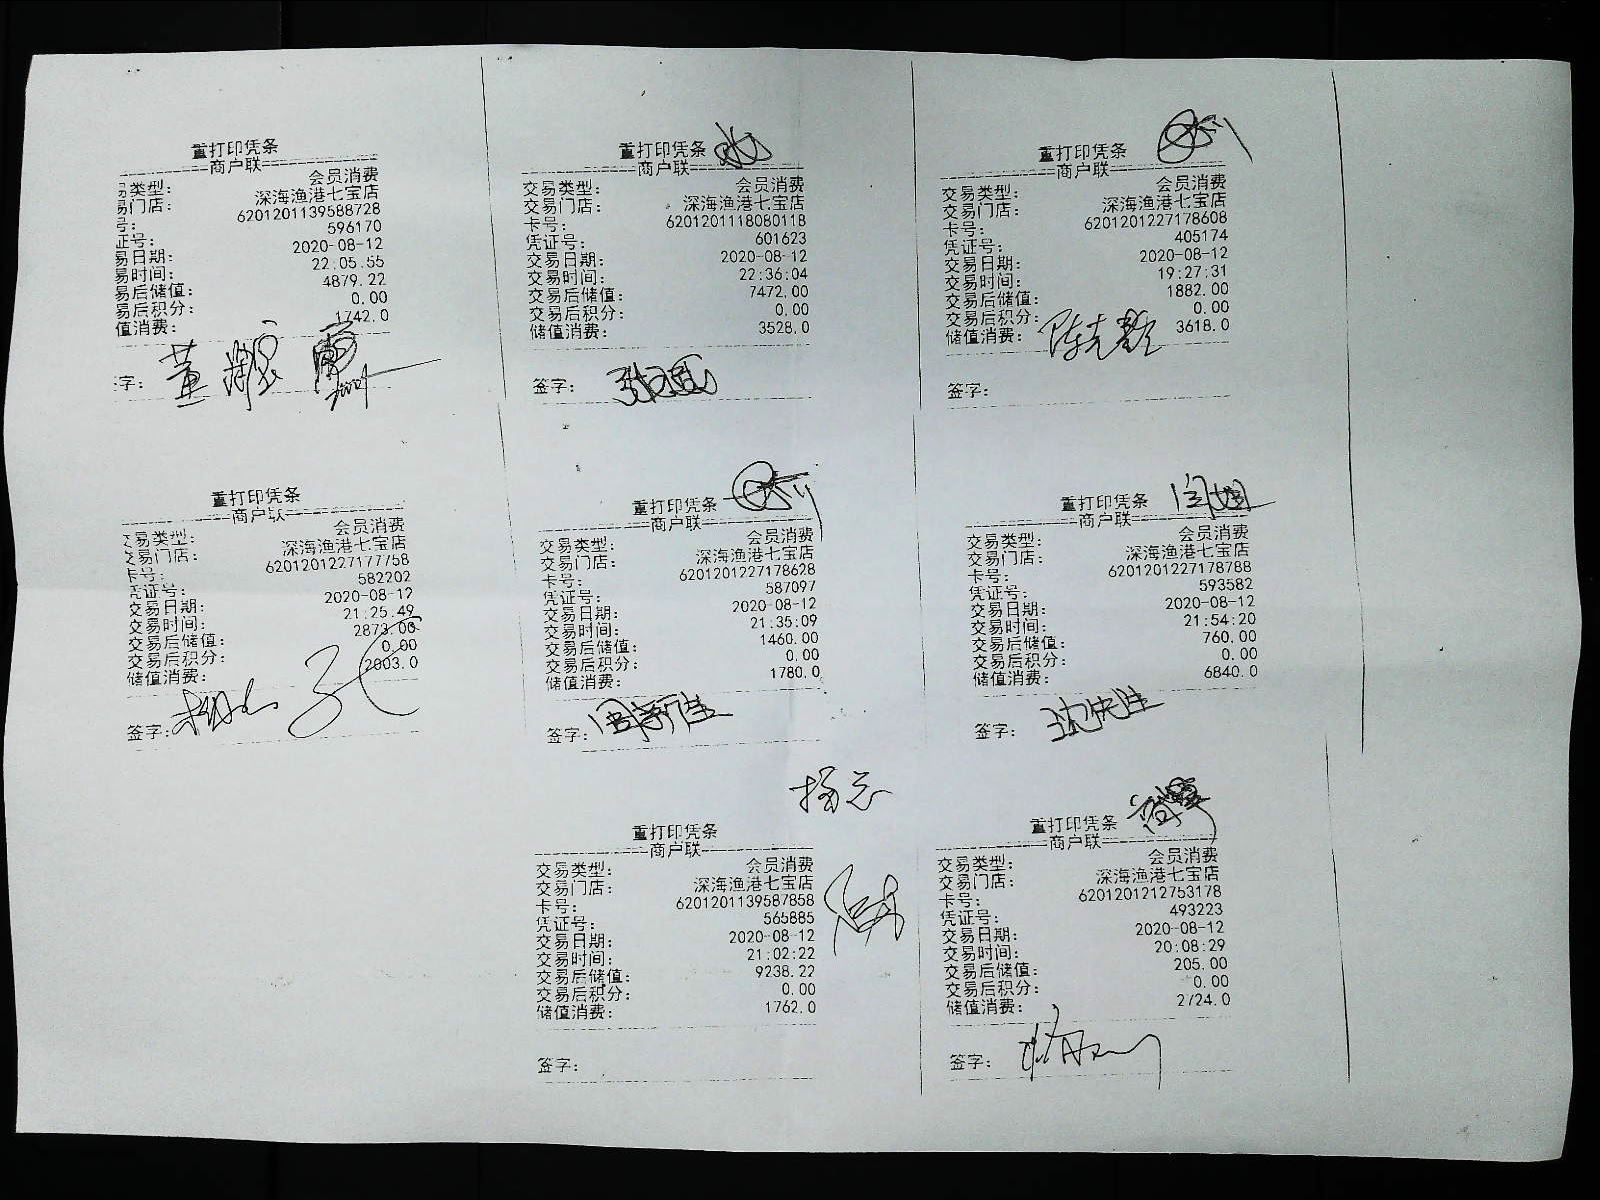 重打印凭条
商户联
易类型： 会员消费
易门店： 深海渔港七宝店
号： 6201201139588728
证号： 596170
易日期： 2020-08-12
易时间： 22:05:55
易后储值： 4879.22
易后积分： 0.00
值消费： 1742.0
字： 董
重打印凭条
商户联
交易类型： 会员消费
交易门店： 深海渔港七宝店
卡号： 6201201118080118
凭证号： 601623
交易日期： 2020-08-12
交易时间： 22:36:04
交易后储值： 7472.00
交易后积分： 0.00
储值消费： 3528.0
签字：
重打印凭条
商户联
交易类型： 会员消费
交易门店： 深海渔港七宝店
卡号： 6201201227178608
凭证号： 405174
交易日期： 2020-08-12
交易时间： 19:27:31
交易后储值： 1882.00
交易后积分： 0.00
储值消费： 3618.0
签字：
重打印凭条
商户联
交易类型： 会员消费
交易门店： 深海渔港七宝店
卡号： 6201201227177758
凭证号： 582202
交易日期： 2020-08-12
交易时间： 21:25:49
交易后储值： 2873.00
交易后积分： 0.00
储值消费： 2003.0
签字：
重打印凭条
商户联
交易类型： 会员消费
交易门店： 深海渔港七宝店
卡号： 6201201227178628
凭证号： 587097
交易日期： 2020-08-12
交易时间： 21:35:09
交易后储值： 1460.00
交易后积分： 0.00
储值消费： 1780.0
签字：
重打印凭条
商户联
交易类型： 会员消费
交易门店： 深海渔港七宝店
卡号： 6201201227178788
凭证号： 593582
交易日期： 2020-08-12
交易时间： 21:54:20
交易后储值： 760.00
交易后积分： 0.00
储值消费： 6840.0
签字：
重打印凭条
商户联
交易类型： 会员消费
交易门店： 深海渔港七宝店
卡号： 6201201139587858
凭证号： 565885
交易日期： 2020-08-12
交易时间： 21:02:22
交易后储值： 9238.22
交易后积分： 0.00
储值消费： 1762.0
签字：
重打印凭条
商户联
交易类型： 会员消费
交易门店： 深海渔港七宝店
卡号： 6201201212753178
凭证号： 493223
交易日期： 2020-08-12
交易时间： 20:08:29
交易后储值： 205.00
交易后积分： 0.00
储值消费： 2724.0
签字：